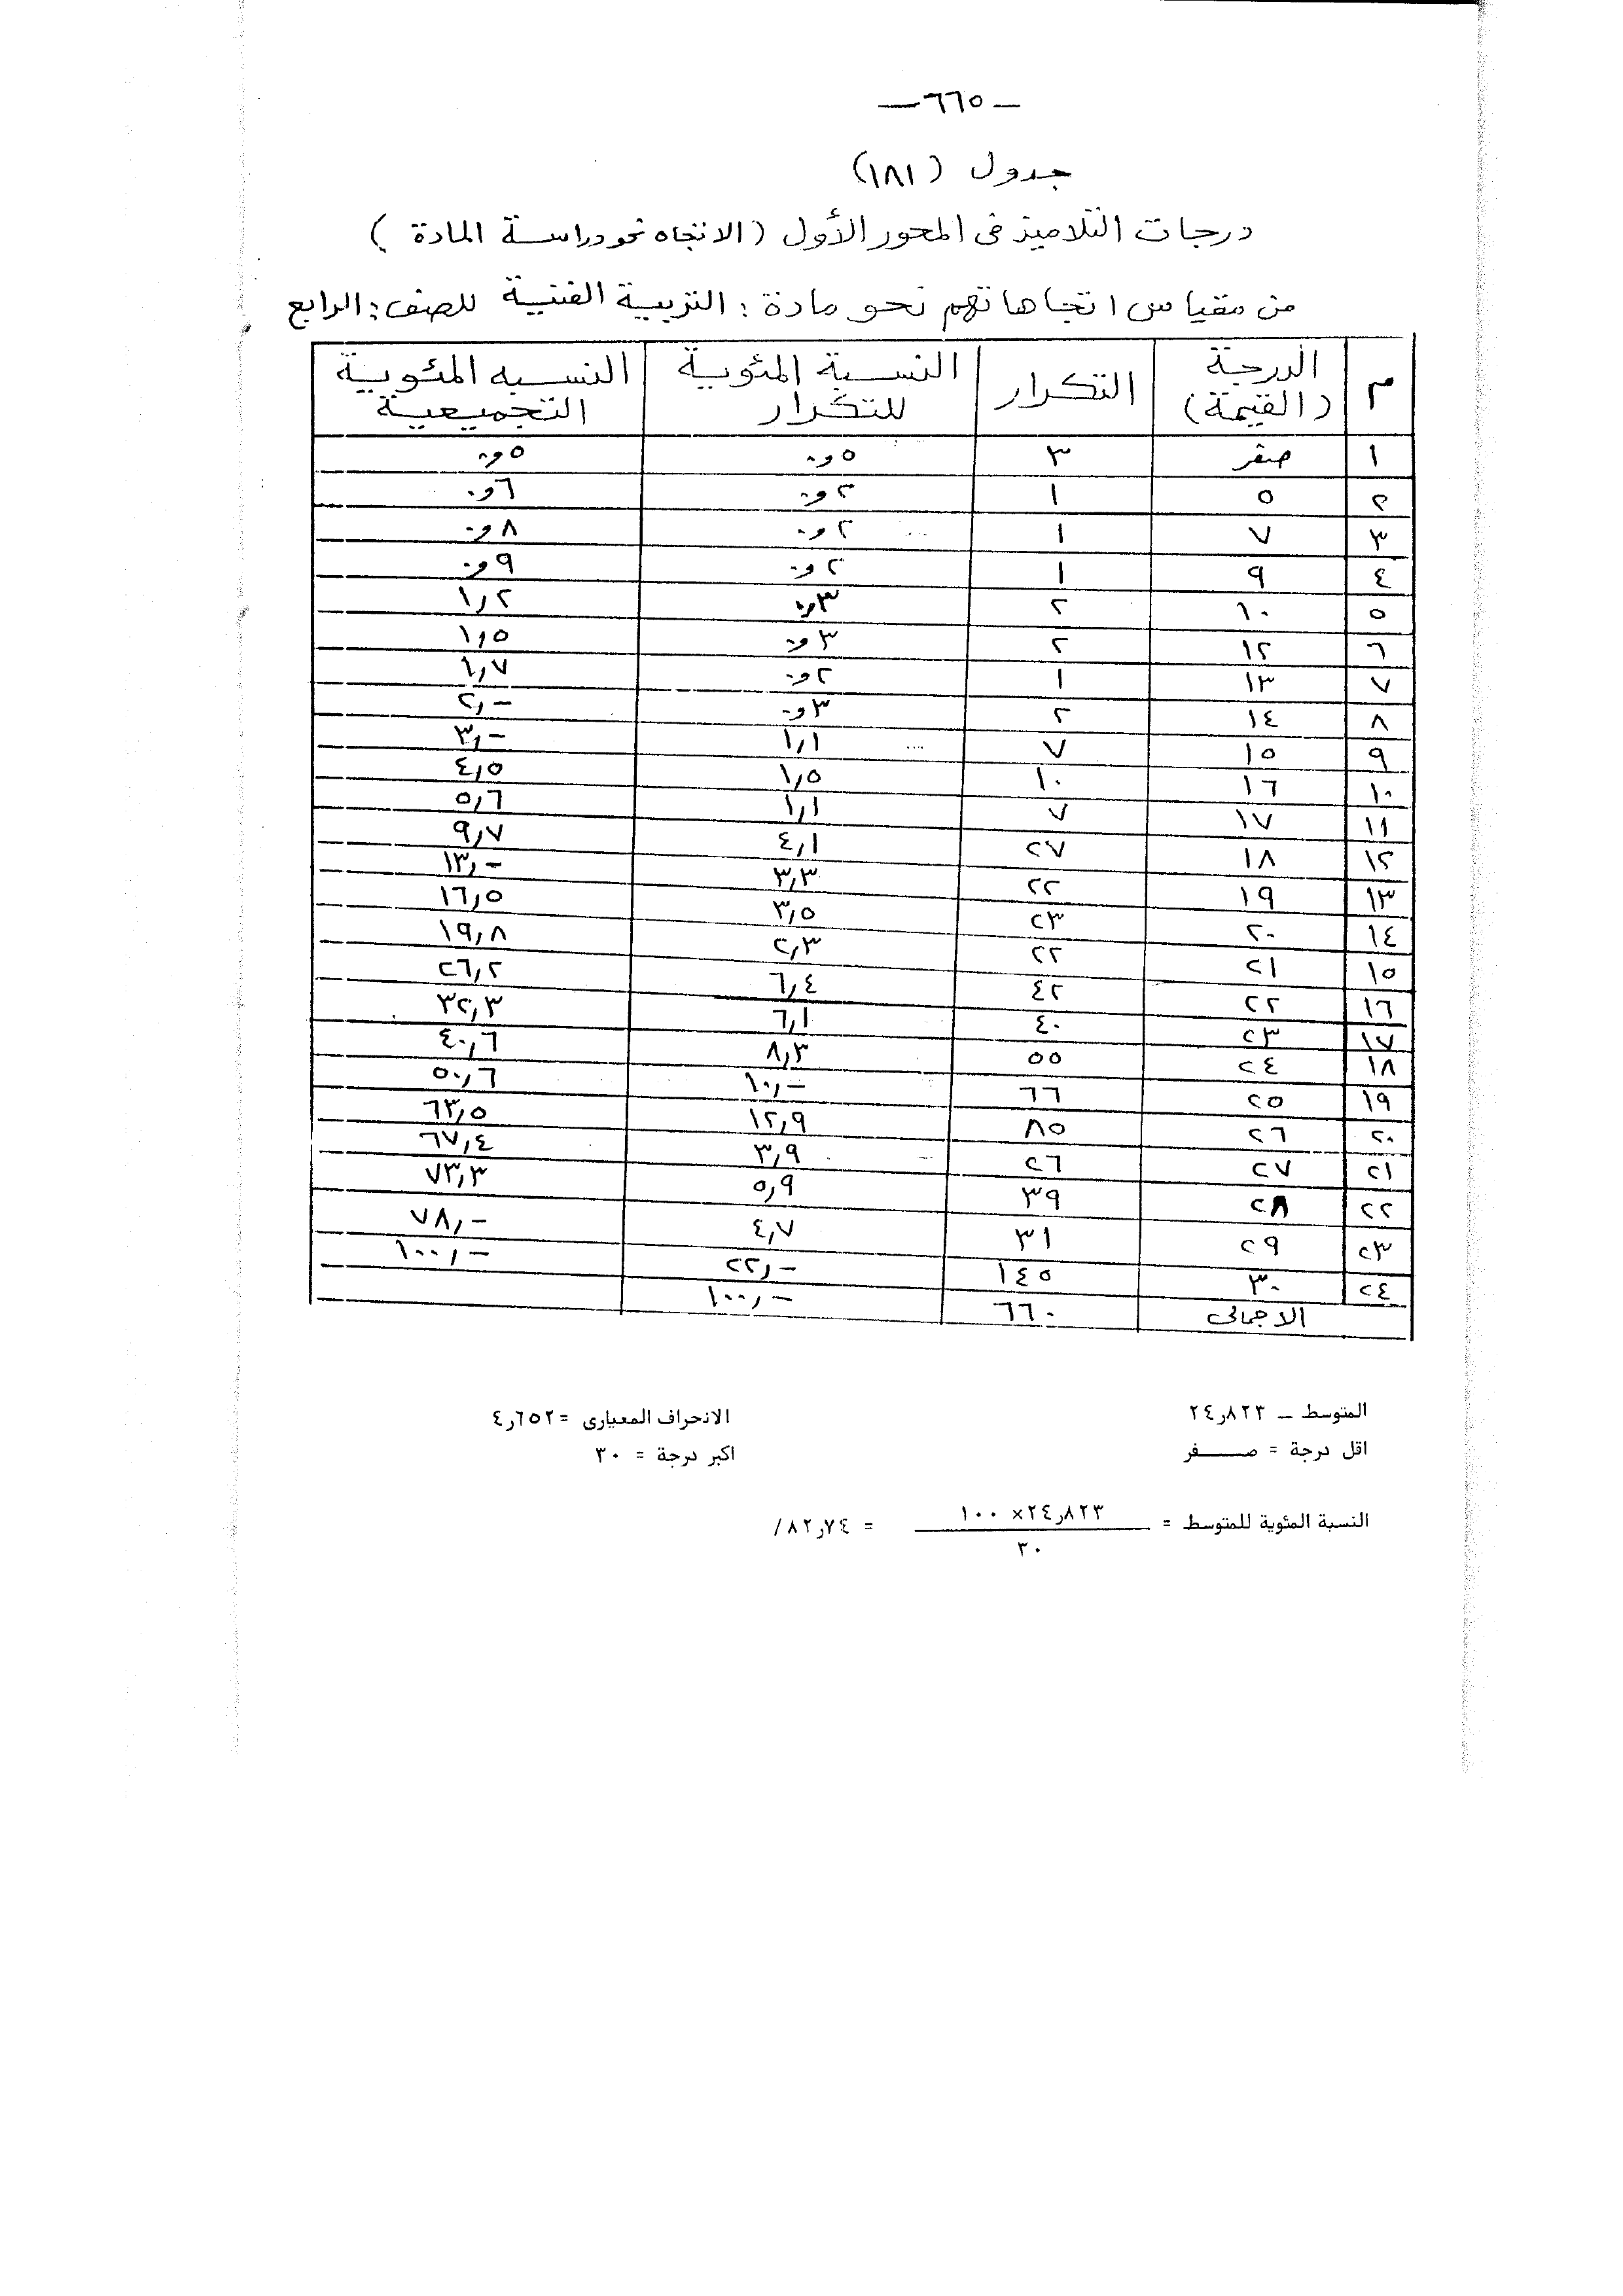 — ٦٦٥ —
جدول (١٨١)
درجات التلاميذ فى المحور الأول (الاتجاه نحو دراسة المادة)
من مقياس اتجاهاتهم نحو مادة : التربية الفنية للصف : الرابع
م الدرجة (القيمة) التكرار النسبة المئوية للتكرار النسبه المئوبية التجميعية
١ صفر ٣ ٥و٠ ٥و٠
٢ ٥ ١ ٢و٠ ٦و٠
٣ ٧ ١ ٢و٠ ٨و٠
٤ ٩ ١ ٢و٠ ٩و٠
٥ ١٠ ٢ ٣و٠ ١٫٢
٦ ١٢ ٢ ٣و٠ ١٫٥
٧ ١٣ ١ ٢و٠ ١٫٧
٨ ١٤ ٢ ٣و٠ ٢٫-
٩ ١٥ ٧ ١٫١ ٣٫-
١٠ ١٦ ١٠ ١٫٥ ٤٫٥
١١ ١٧ ٧ ١٫١ ٥٫٦
١٢ ١٨ ٢٧ ٤٫١ ٩٫٧
١٣ ١٩ ٢٢ ٣٫٣ ١٣٫-
١٤ ٢٠ ٢٣ ٣٫٥ ١٦٫٥
١٥ ٢١ ٢٢ ٢٫٣ ١٩٫٨
١٦ ٢٢ ٤٢ ٦٫٤ ٢٦٫٢
١٧ ٢٣ ٤٠ ٦٫١ ٣٢٫٣
١٨ ٢٤ ٥٥ ٨٫٣ ٤٠٫٦
١٩ ٢٥ ٦٦ ١٠٫- ٥٠٫٦
٢٠ ٢٦ ٨٥ ١٢٫٩ ٦٣٫٥
٢١ ٢٧ ٢٦ ٣٫٩ ٦٧٫٤
٢٢ ٢٨ ٣٩ ٥٫٩ ٧٣٫٣
٢٣ ٢٩ ٣١ ٤٫٧ ٧٨٫-
٢٤ ٣٠ ١٤٥ ٢٢٫- ١٠٠٫-
الاجمالى ٦٦٠ ١٠٠٫-
المتوسط ـ ٨٢٣ر٢٤ الانحراف المعيارى = ٦٥٢ر٤
اقل درجة = صـــفر اكبر درجة = ٣٠
النسبة المئوية للمتوسط = ٨٢٣ر٢٤× ١٠٠ = ٧٤ر٨٢/
٣٠